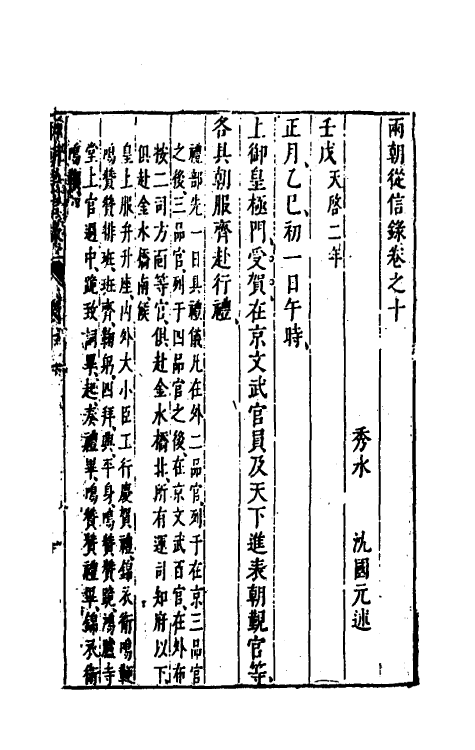 兩朝從信錄卷之十
秀水 沈國元述
壬戌天啓二年
正月乙巳初一日午時
上御皇極門受賀在京文武官員及天下進表朝覲官等
各具朝服齊赴行禮
禮部先一日具禮儀凡在外二品官列于在京三品官
之後三品官列于四品官之後在京文武百官在外布
按二司方面等官俱赴金水橋北所有運司知府以下
俱赴金水橋南候
皇上服弁升座內外大小臣工行慶賀禮錦衣衛鳴鞭
鳴贊贊排班班齊鞠躬四拜興平身鳴贊贊跪鴻臚寺
堂上官遇中跪致詞畢起奏禮畢鳴贊贊禮畢錦衣衛
鳴鞭